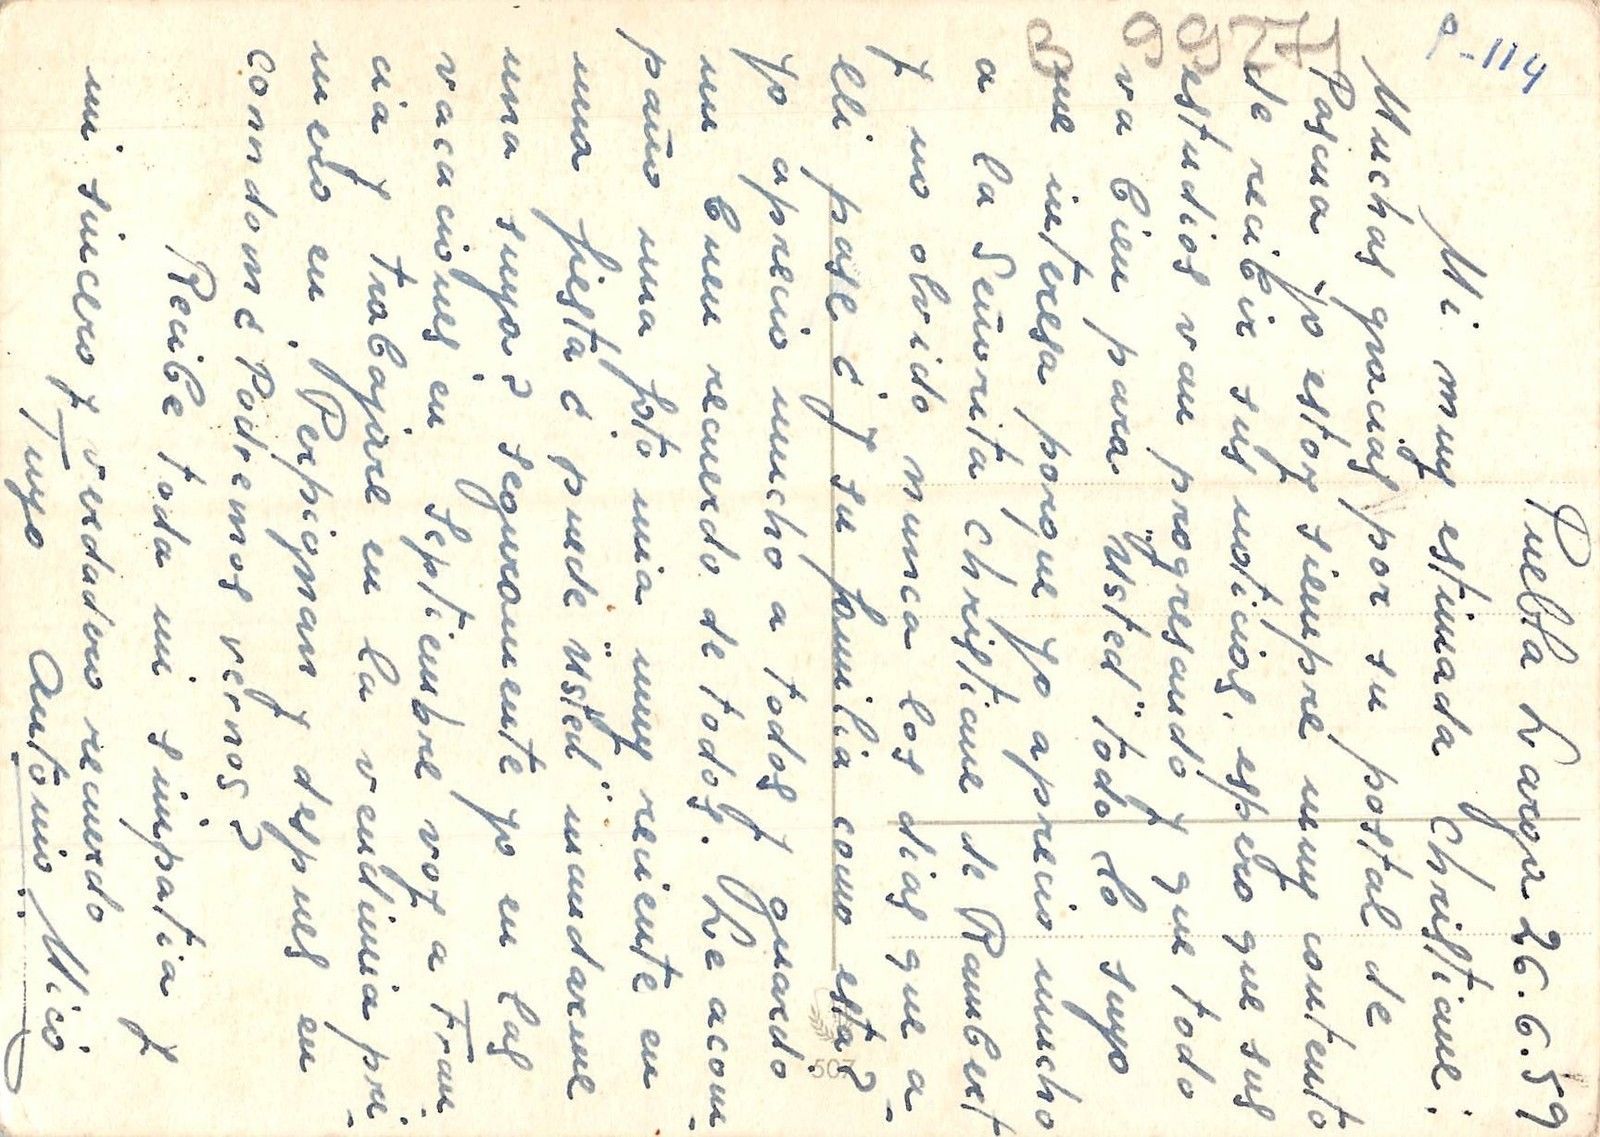 Puebla Larga 26.6.59
Mi muy estimada Christiane:
Muchas gracias por su postal de
Pascua Yo estoy siempre muy contento
de recibir sus noticias, espero que sus
estudios van progresando y que todo
va bien para "Usted" todo lo suyo
me interesa porque Yo aprecio mucho
a la Señorita Christiane de Rambert
y no olvido nunca los dias que a-
lli pase ¿y su familia como esta?
Yo aprecio mucho a todos y guardo
un buen recuerdo de todos. Le acom-
paño una foto mia muy reciente en
una fiesta ¿puede "Usted" mandarme
una suya? seguramente yo en las
vacaciones en Septiembre voy a Fran-
cia y trabajare en la vendimia pri-
mero en Perpignan y despues en
Corndomé Podremos vernos?
Recibe toda mi simpatia y
mi sincero y verdadero recuerdo
Tuyo Antonio Micó
P-114
3 9927
507